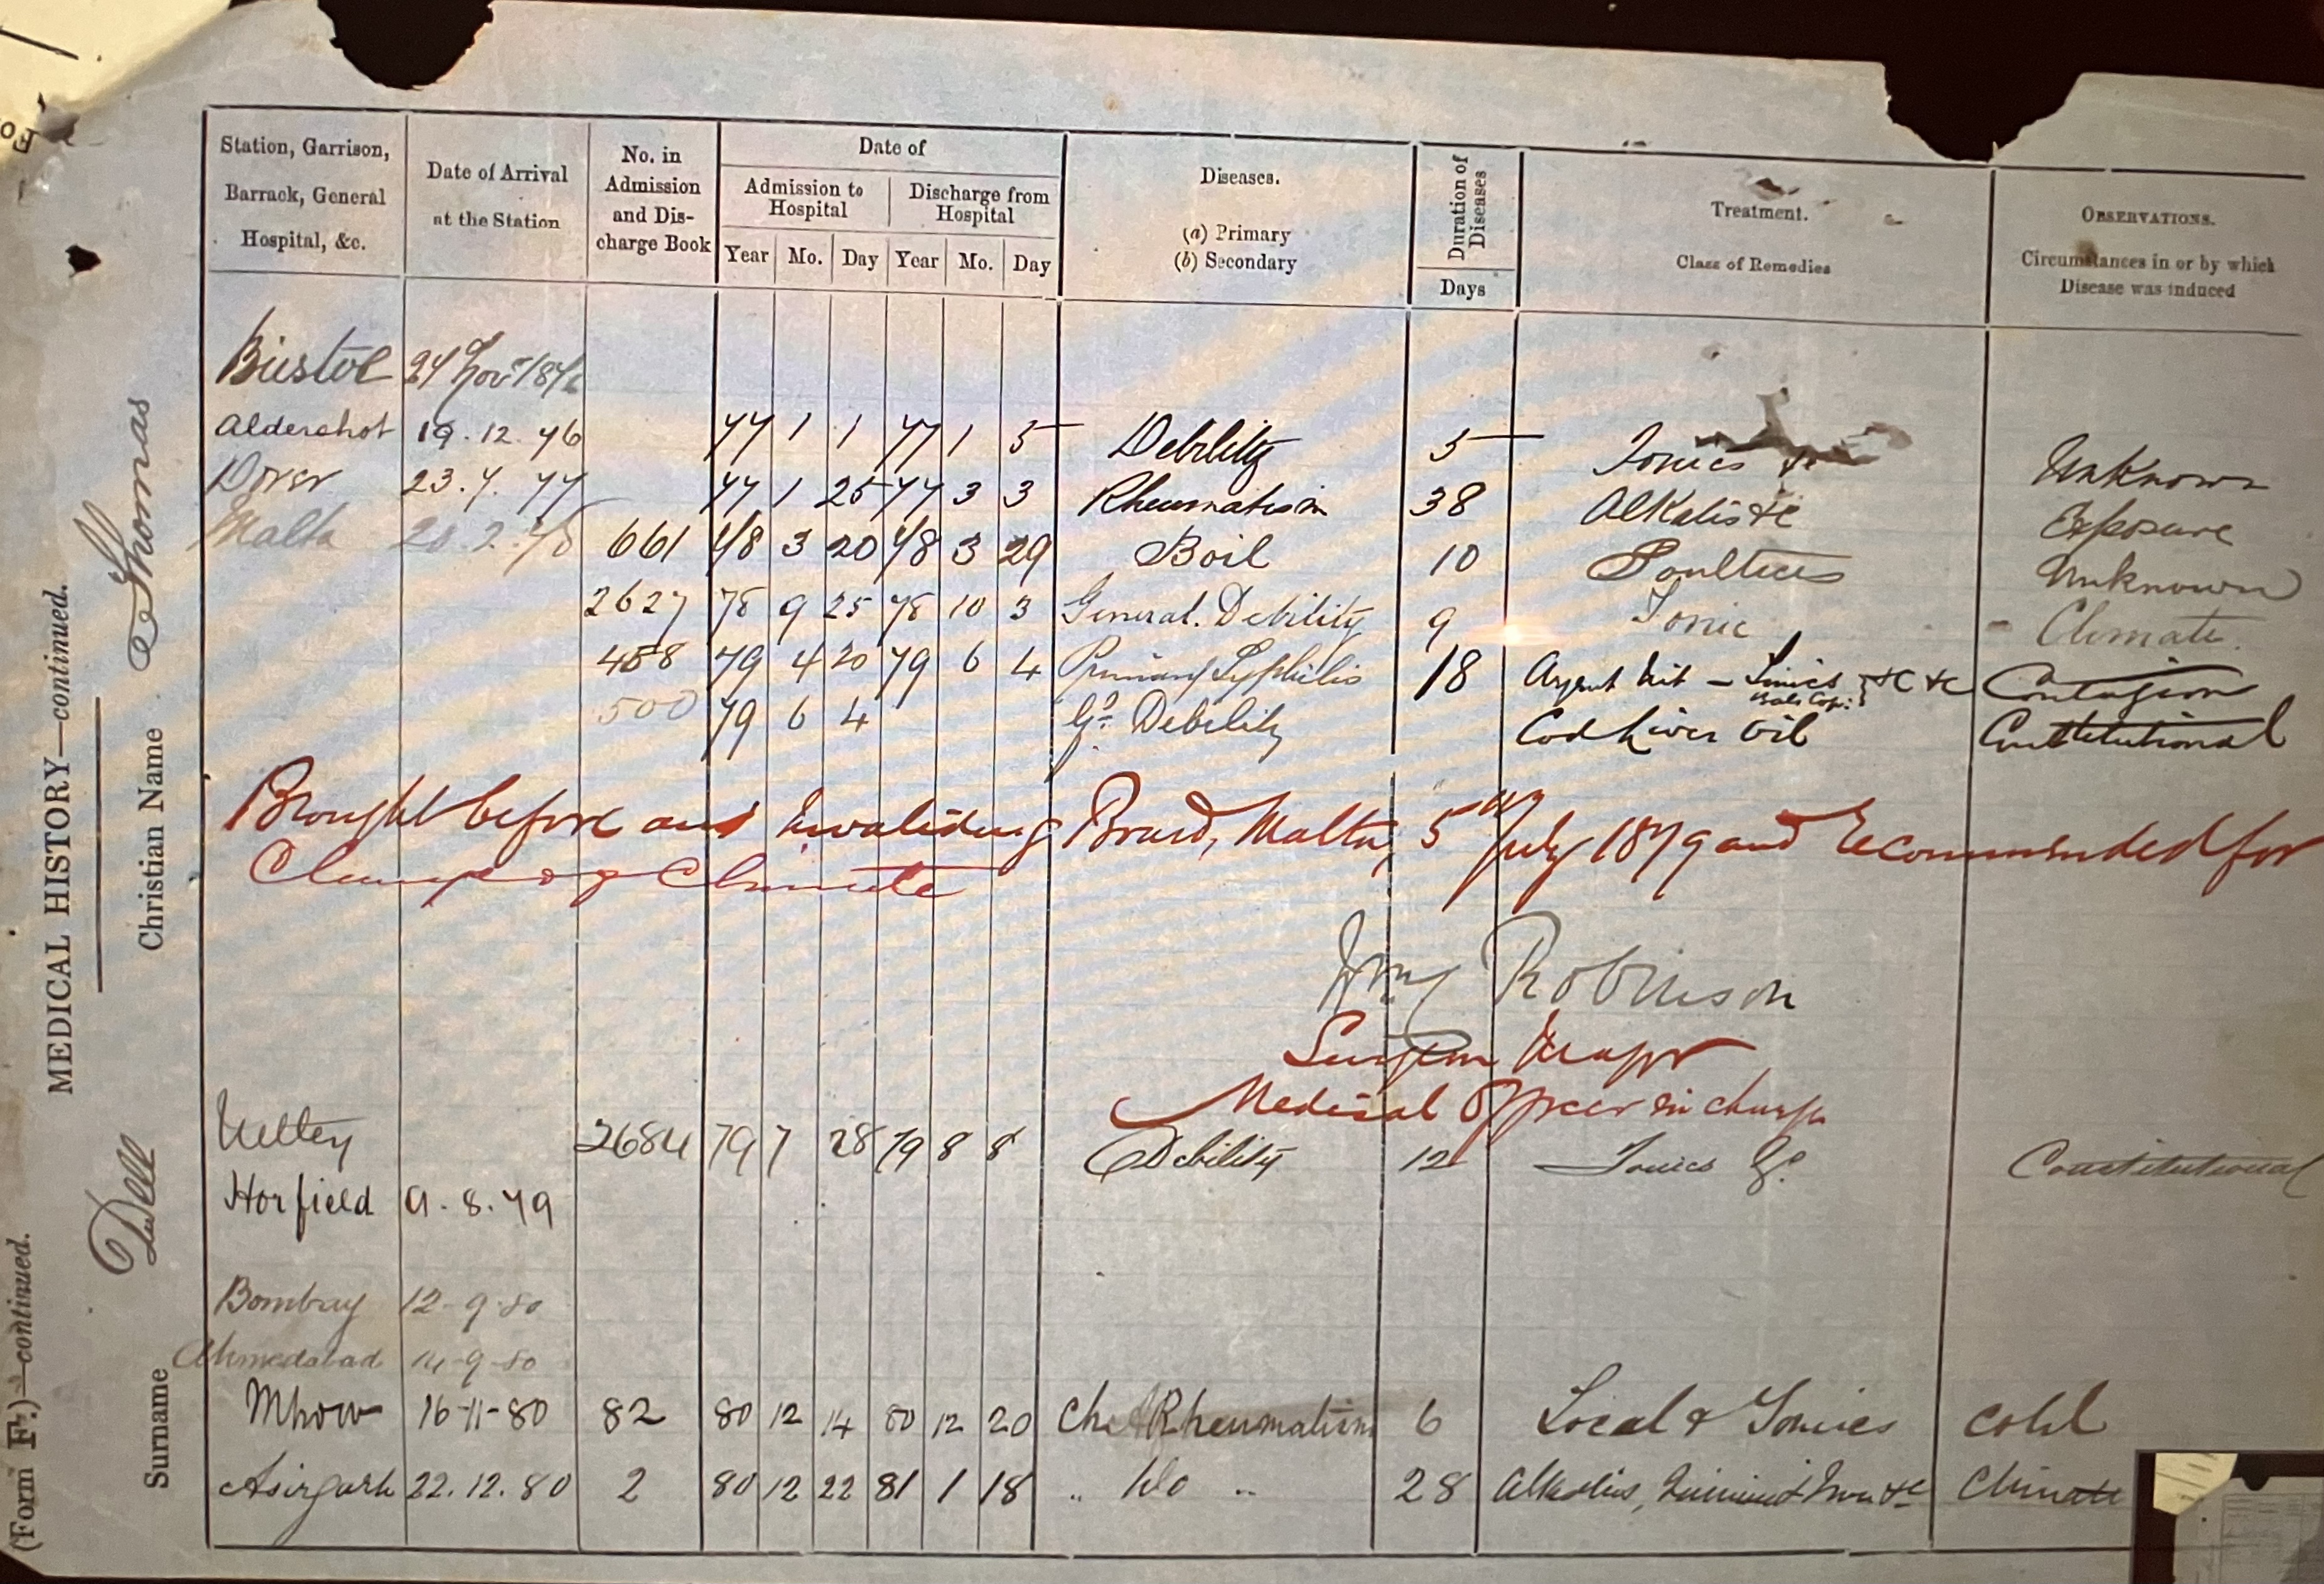 Station, Garrison, Barrack, General Hospital, &c. Date of Arrival at the Station No. in Admission and Discharge Book Date of Diseases. Duration of Diseases Treatment. OBSERVATIONS.
Admission to Hospital Discharge from Hospital (a) Primary (b) Secondary Class of Remedies Circumstances in or by which Disease was induced
Year Mo. Day Year Mo. Day Days
Bristol 24 Nov 1876
Aldershot 19.12.76 77 1 1 77 1 5 Debility 5 Tonics &c Unknown
Dover 23.7.77 77 1 25 77 3 3 Rheumatism 38 Alkalis &c Exposure
Malta 20.2.78 661 78 3 20 78 3 29 Boil 10 Poultices Unknown
2627 78 9 25 78 10 3 General. Debility 9 Tonic Climate.
458 79 4 20 79 6 4 Primary Syphilis 18 Argent Nit - Tonics &c &c Contagion
500 79 6 4 Gl. Debility Cod Liver Oil Constitutional
Brought before an Invaliding Board, Malta, 5th July 1879 and Recommended for
Change of Climate
Robinson
Surgeon Major
Medical Officer in charge
Netley 2684 79 7 28 79 8 8 Debility 12 Tonics &c. Constitutional
Horfield 9.8.79
Bombay 12-9-80
Ahmedabad 14-9-80
Mhow 16-11-80 82 80 12 14 80 12 20 Ch. Rheumatism 6 Local & Tonics Cold
Asirgarh 22.12.80 2 80 12 22 81 1 18 " Do " 28 Alkalies, &c Climate
(Form F.)—continued.
MEDICAL HISTORY—continued.
Surname Dell Christian Name Thomas